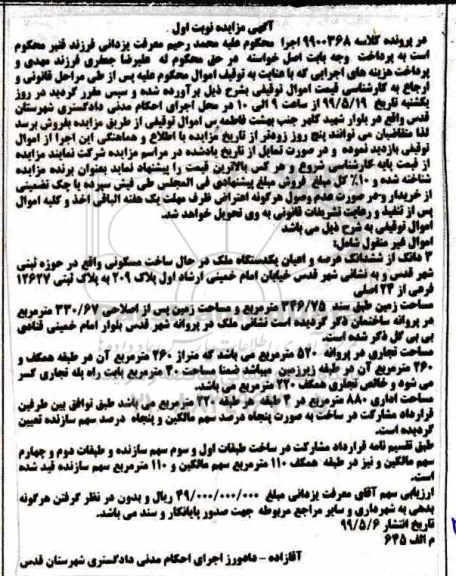 آگهی مزایده نوبت اول
در پرونده کلاسه ۹۹۰۰۳۶۸ اجرا محکوم علیه محمد رحیم معرفت یزدانی فرزند قنبر محکوم
است به پرداخت وجه بابت اصل خواسته در حق محکوم له علیرضا جعفری فرزند مهدی و
پرداخت هزینه های اجرایی که با عنایت به توقیف اموال محکوم علیه پس از طی مراحل قانونی و
ارجاع به کارشناسی قیمت اموال توقیفی بشرح ذیل برآورده شده و سپس مقرر گردید در روز
یکشنبه تاریخ ۹۹/۵/۱۹ از ساعت ۹ الی ۱۰ در محل اجرای احکام مدنی دادگستری شهرستان
قدس واقع در بلوار شهید کلهر جنب بهشت فاطمه س اموال توقیفی از طریق مزایده بفروش برسد
لذا متقاضیان می توانند پنج روز زودتر از تاریخ مزایده با اطلاع و هماهنگی این اجرا از اموال
توقیفی بازدید نموده و در صورت تمایل از تاریخ یادشده در مراسم مزایده شرکت نمایند مزایده
از قیمت پایه کارشناسی شروع و هر کس بالاترین قیمت را پیشنهاد نماید بعنوان برنده مزایده
شناخته شده و ۱۰٪ کل مبلغ فروش مبلغ پیشنهادی فی المجلس طی فیش سپرده یا چک تضمینی
از خریدار و در صورت عدم وصول هرگونه اعتراضی ظرف مهلت یک هفته الباقی اخذ و کلیه اموال
پس از تنفیذ و رعایت تشریفات قانونی به وی تحویل خواهد شد.
اموال توقیفی به شرح ذیل می باشد
اموال غیر منقول شامل:
۳ دانگ از ششدانگ عرصه و اعیان یکدستگاه ملک در حال ساخت مسکونی واقع در حوزه ثبتی
شهر قدس و به نشانی شهر قدس خیابان امام خمینی ارشاد اول پلاک ۲۰۹ به پلاک ثبتی ۱۲۶۲۷
فرعی از ۲۴ اصلی
مساحت زمین طبق سند ۳۴۶/۷۵ مترمربع و مساحت زمین پس از اصلاحی ۳۳۰/۶۷ مترمربع
در پروانه ساختمان ذکر گردیده است نشانی ملک در پروانه شهر قدس بلوار امام خمینی قنادی
بی بی گل ذکر شده است.
مساحت تجاری در پروانه ۵۲۰ مترمربع می باشد که متراژ ۲۶۰ مترمربع آن در طبقه همکف و
۲۶۰ مترمربع آن در طبقه زیرزمین میباشد ضمنا مساحت ۴۰ مترمربع بابت راه پله تجاری کسر
می شود و خالص تجاری همکف ۲۲۰ مترمربع می باشد.
مساحت اداری ۸۸۰ مترمربع در ۴ طبقه هر طبقه ۲۲۰ مترمربع می باشد طبق توافق بین طرفین
قرارداد مشارکت در ساخت به صورت پنجاه درصد سهم مالکین و پنجاه درصد سهم سازنده تعیین
گردیده است.
طبق تقسیم نامه قرارداد مشارکت در ساخت طبقات اول و سوم سهم سازنده و طبقات دوم و چهارم
سهم مالکین و نیز در طبقه همکف ۱۱۰ مترمربع سهم مالکین و ۱۱۰ مترمربع سهم سازنده قید شده
است.
ارزیابی سهم آقای معرفت یزدانی مبلغ ۴۹/۰۰۰/۰۰۰/۰۰۰ ریال و بدون در نظر گرفتن هرگونه
بدهی به شهرداری و سایر مراجع مربوطه جهت صدور پایانکار و سند می باشد.
تاریخ انتشار ۹۹/۵/۶
م الف ۶۴۵
آقازاده - دادورز اجرای احکام مدنی دادگستری شهرستان قدس